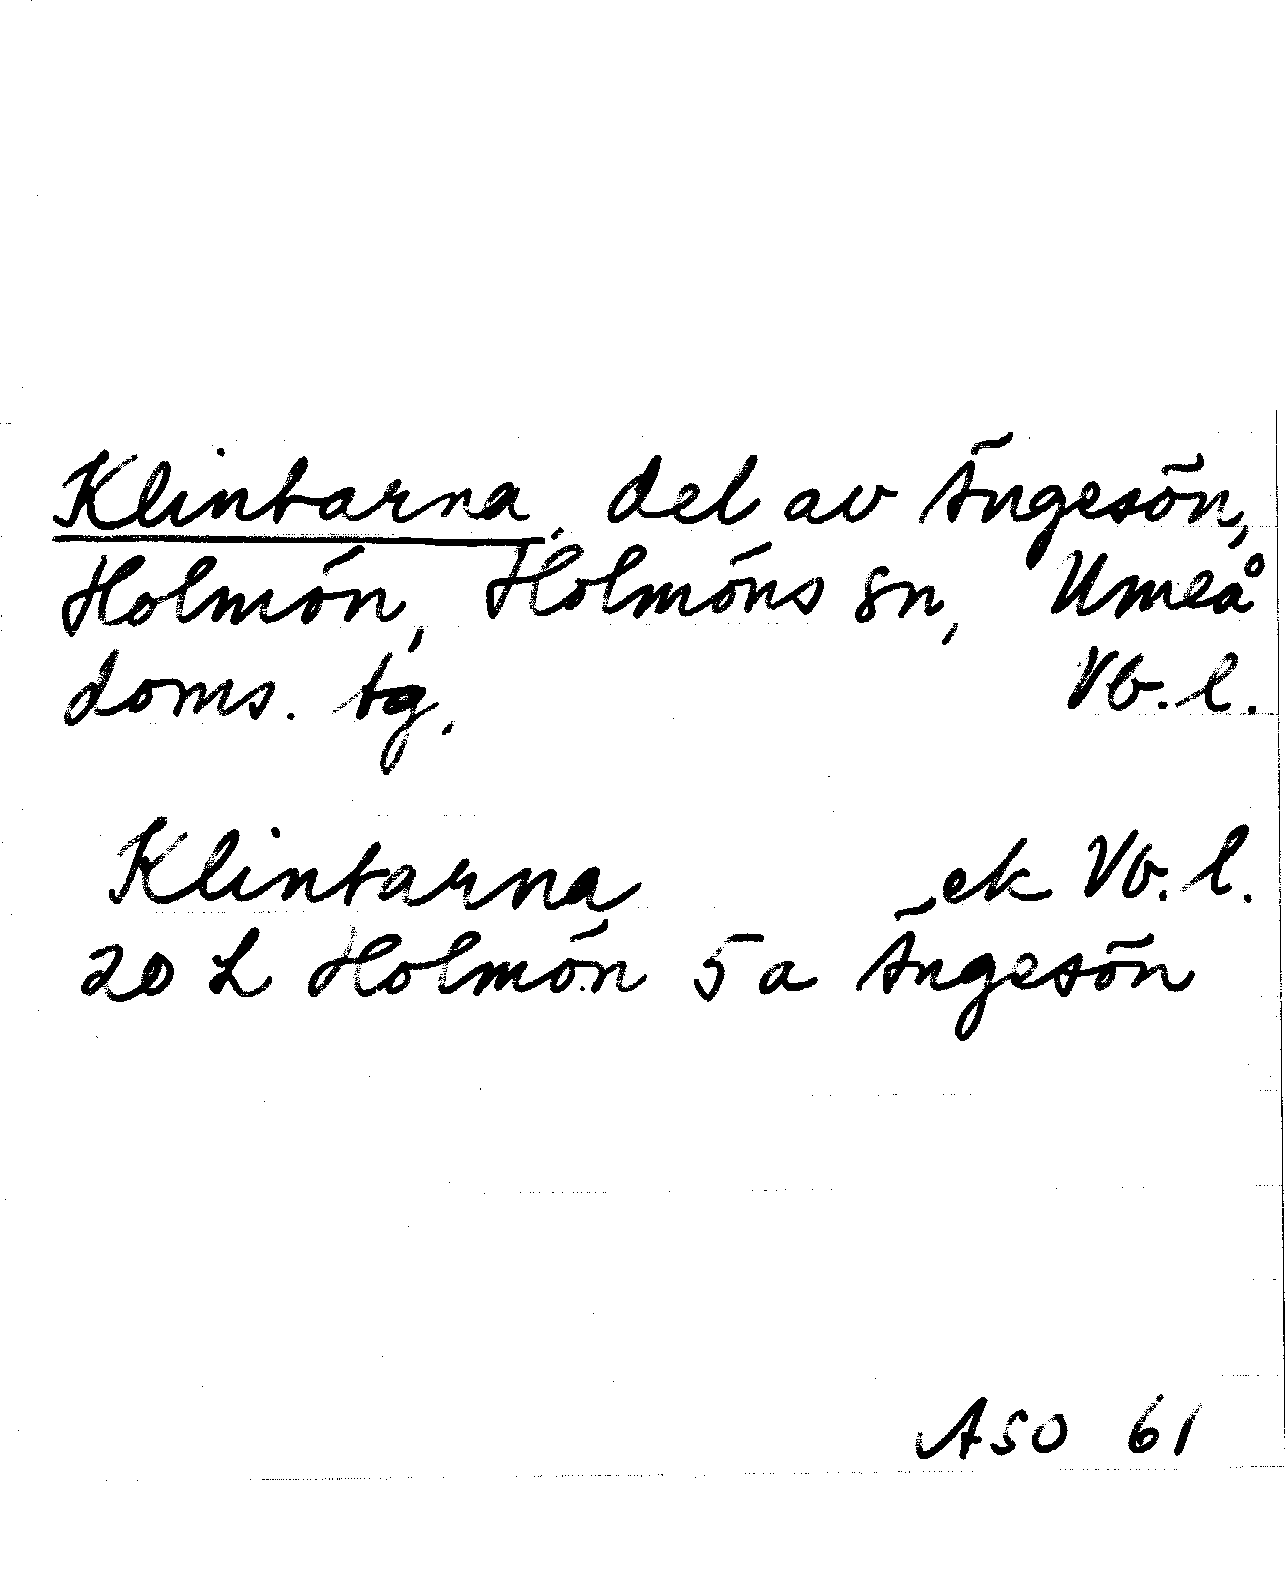 Klintarna, del av Ängesön,
Holmön, Holmöns sn, Umeå
doms. tg. Vb. l.
Klintarna ek Vb. l.
20 L Holmön 5 a Ängesön
ASO 61